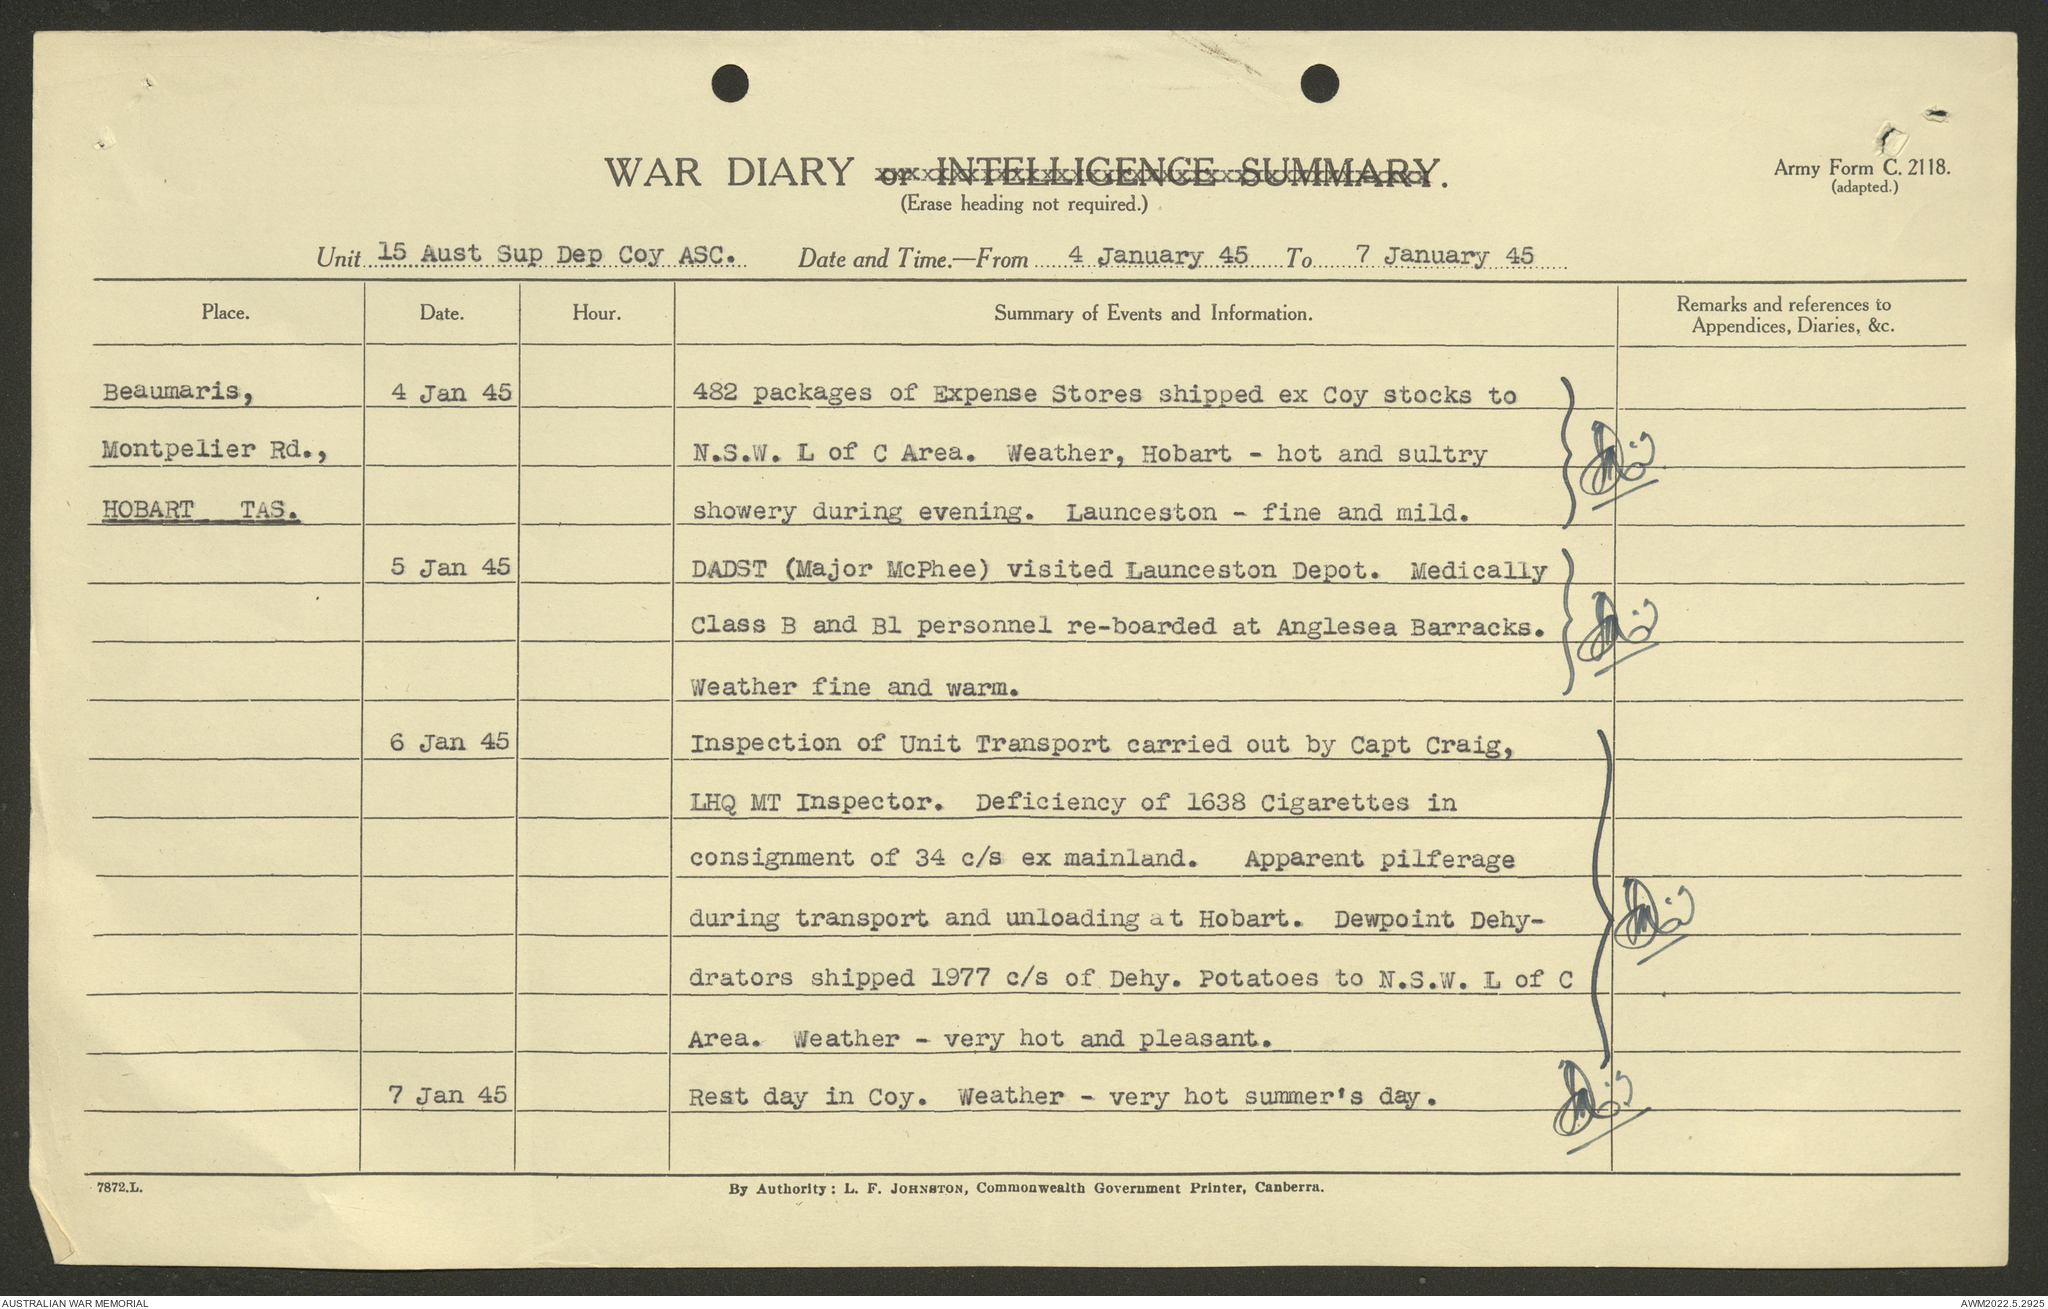 WAR DIARY or INTELLIGENCE SUMMARY.
(Erase heading not required.)
Army Form C. 2118.
(adapted.)
Unit 15 Aust Sup Dep Coy ASC. Date and Time.—From 4 January 45 To 7 January 45
Place. Date. Hour. Summary of Events and Information. Remarks and references to
Appendices, Diaries, &c.
Beaumaris, 4 Jan 45 482 packages of Expense Stores shipped ex Coy stocks to
Montpelier Rd., N.S.W. L of C Area. Weather, Hobart - hot and sultry
HOBART TAS. showery during evening. Launceston - fine and mild.
5 Jan 45 DADST (Major McPhee) visited Launceston Depot. Medically
Class B and B1 personnel re-boarded at Anglesea Barracks.
Weather fine and warm.
6 Jan 45 Inspection of Unit Transport carried out by Capt Craig,
LHQ MT Inspector. Deficiency of 1638 Cigarettes in
consignment of 34 c/s ex mainland. Apparent pilferage
during transport and unloading at Hobart. Dewpoint Dehy-
drators shipped 1977 c/s of Dehy. Potatoes to N.S.W. L of C
Area. Weather - very hot and pleasant.
7 Jan 45 Rest day in Coy. Weather - very hot summer's day.
7872.L.
By Authority: L. F. JOHNSTON, Commonwealth Government Printer, Canberra.
AUSTRALIAN WAR MEMORIAL
AWM2022.5.2925